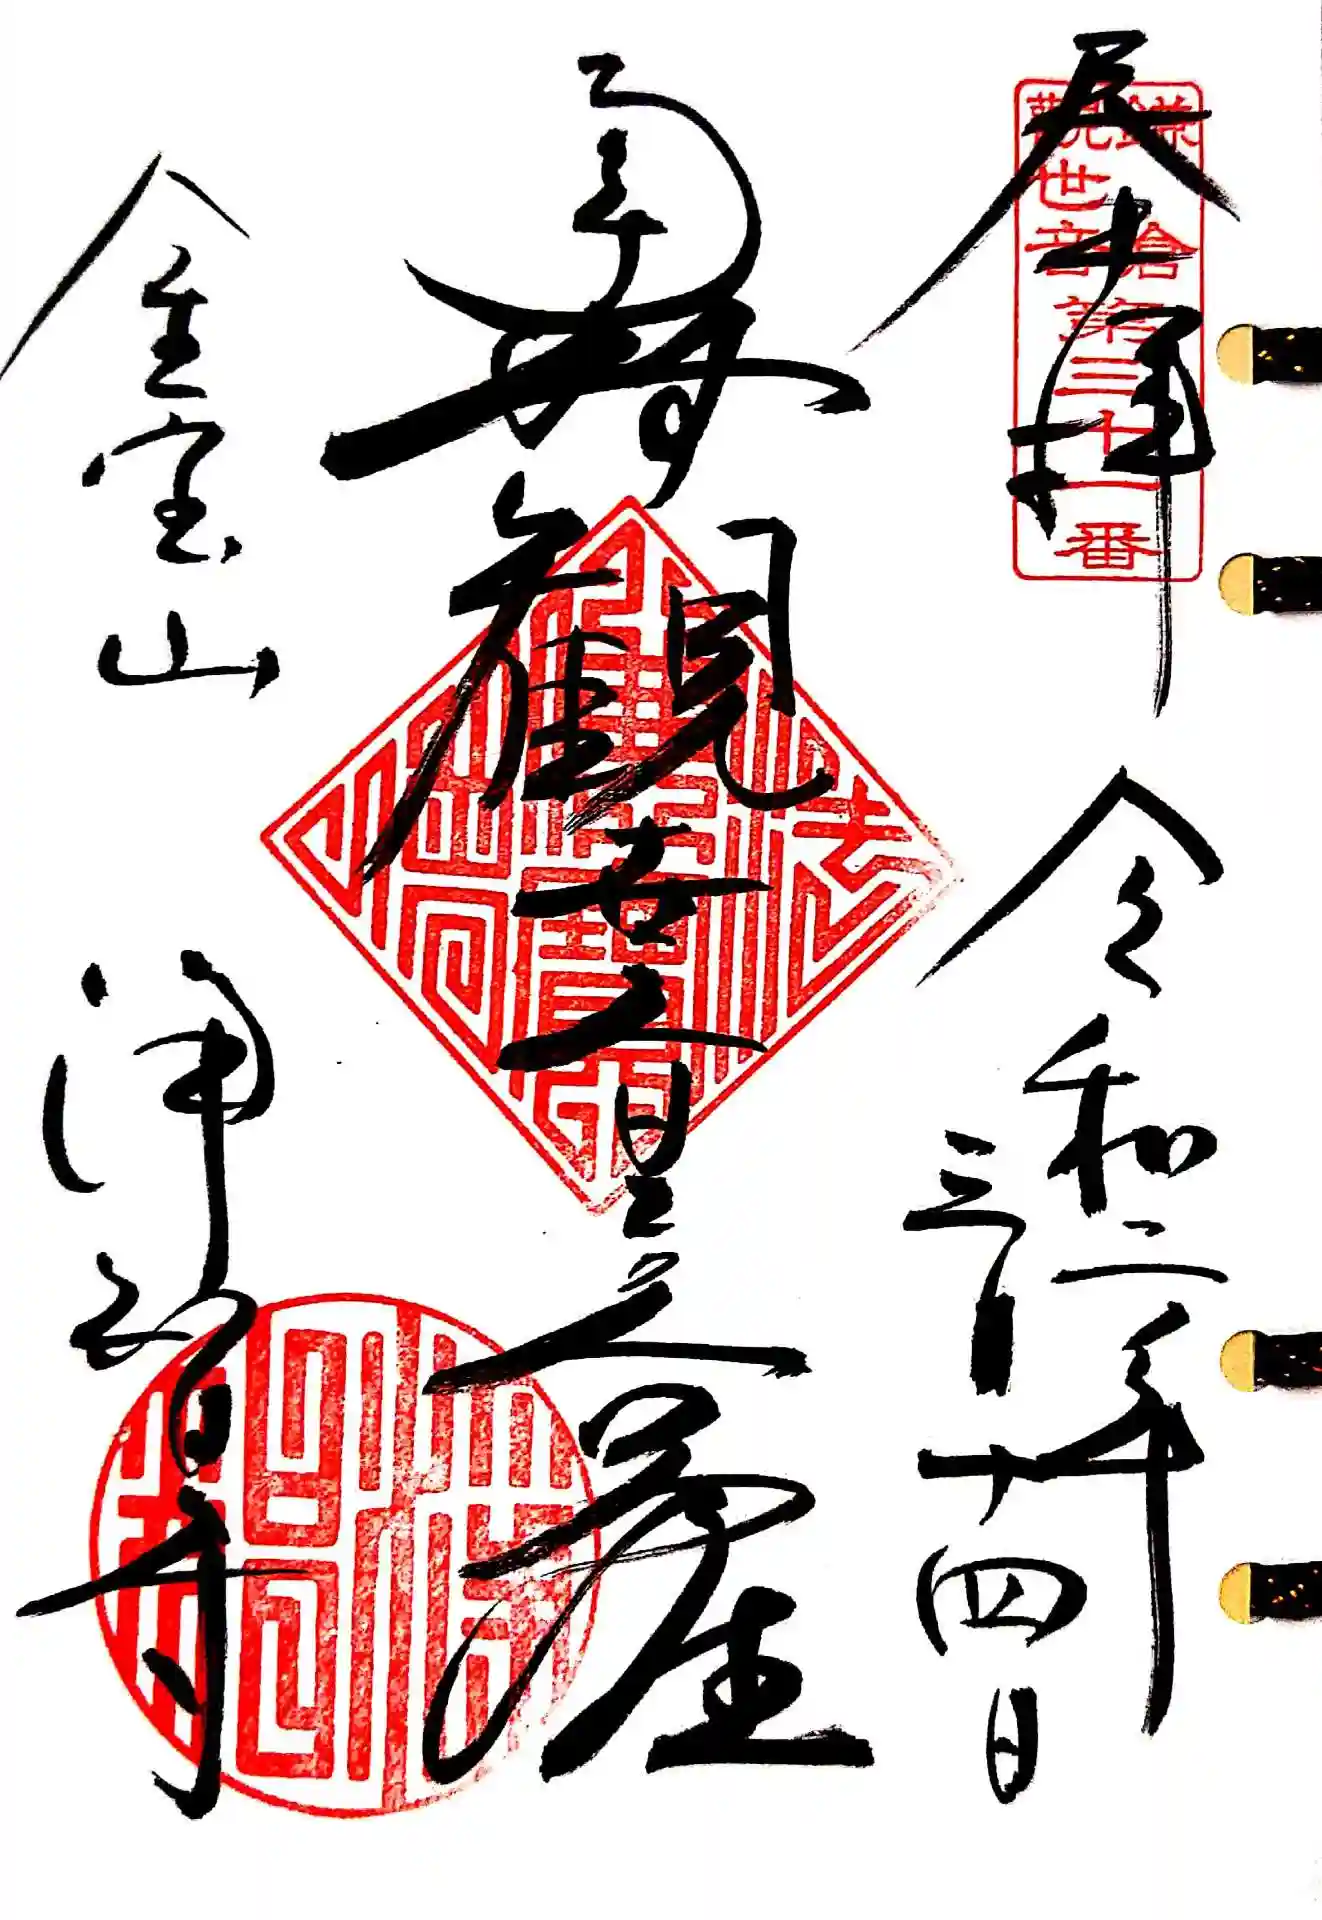 奉拝
鎌倉
觀世音
第三十一番
令和二年
三月十四日
南無觀世音菩薩
金宝山
浄智寺